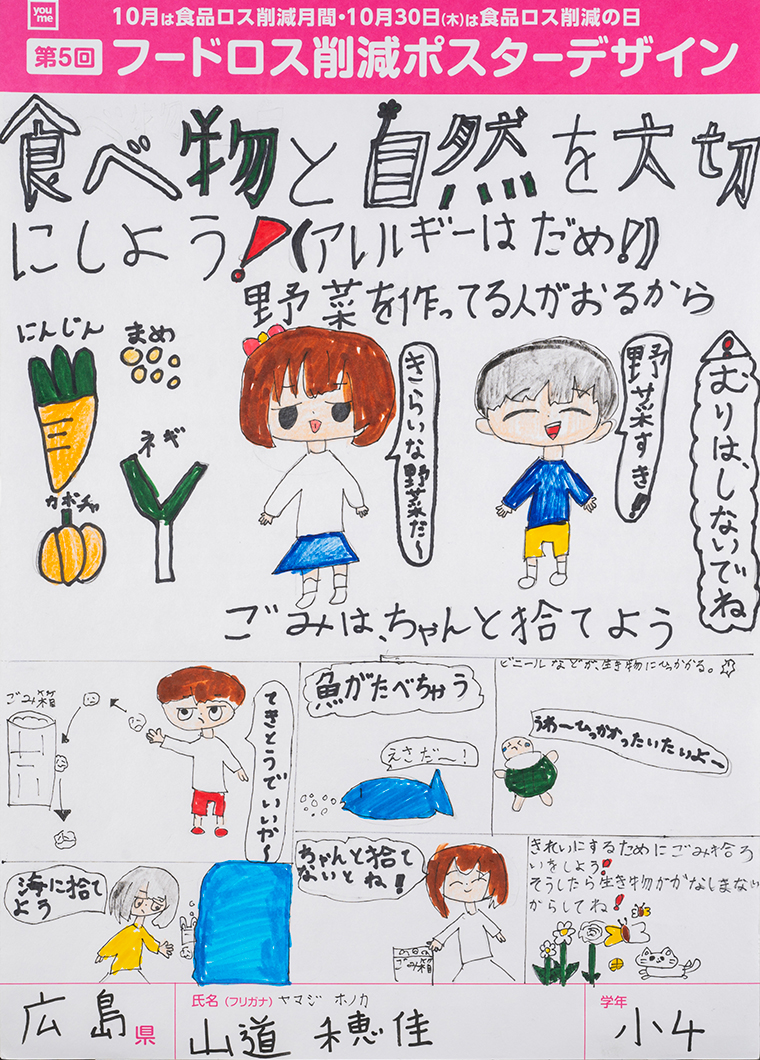 you
me
10月は食品ロス削減月間・10月30日(木)は食品ロス削減の日
第5回 フードロス削減ポスターデザイン
食べ物と自然を大切
にしよう!(アレルギーはだめ!!)
野菜を作ってる人がおるから
にんじん
まめ
ネギ
カボチャ
きらいな野菜だ〜
野菜すき!
むりは、しないでね
ごみは、ちゃんと捨てよう
ごみ箱
てきとうでいいか〜
魚がたべちゃう
えさだ〜!
ビニールなどが、生き物にひっかかる。
うわーひっかかったいたいよ〜
海に捨て
よう
ちゃんと捨て
ないとね!
ごみ箱
きれいにするためにごみ拾ろ
いをしよう!
そうしたら生き物がかなしまない
からしてね!
広島県
氏名(フリガナ) ヤマジ ホノカ
山道 穂佳
学年
小4